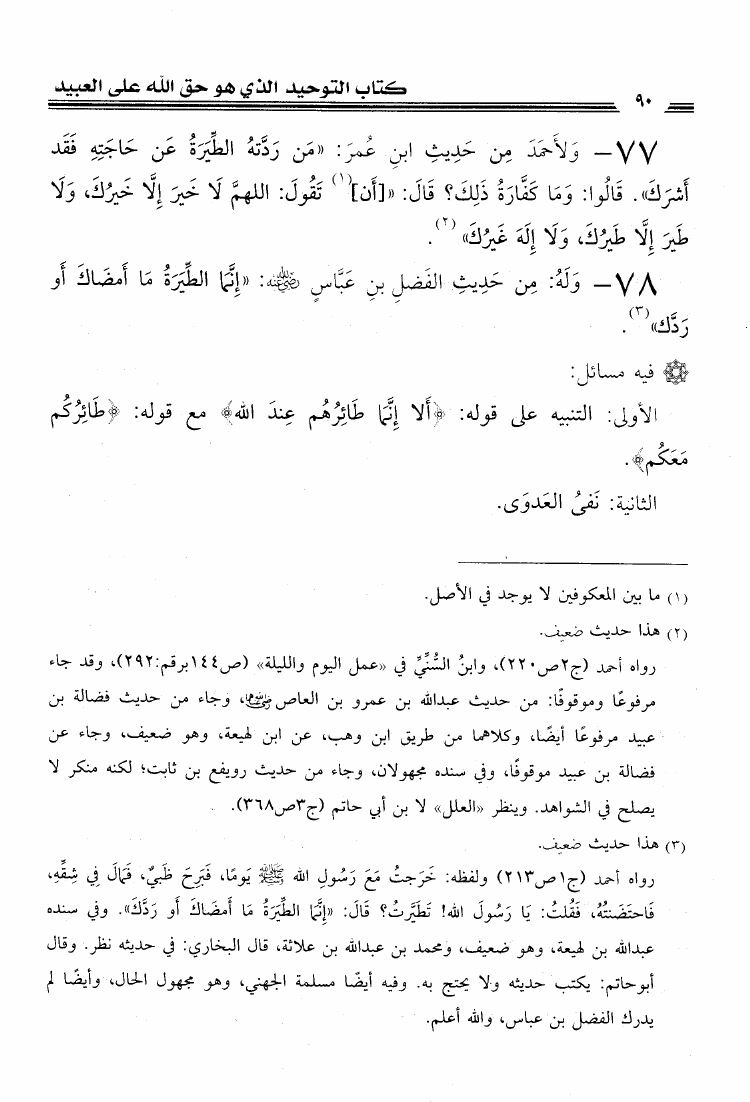 ٩٠ كتاب التوحيد الذي هو حق الله على العبيد
٧٧- وَلأَحمَدَ مِن حَدِيثِ ابنِ عُمرَ: «مَن رَدَّتهُ الطِّيَرَةُ عَن حَاجَتِهِ فَقَد
أَشرَكَ». قَالُوا: وَمَا كَفَّارَةُ ذَلِكَ؟ قَالَ: «[أَن](١) تَقُولَ: اللهمَّ لَا خَيرَ إِلَّا خَيرُكَ، وَلَا
طَيرَ إِلَّا طَيرُكَ، وَلَا إِلَهَ غَيرُكَ»(٢).
٧٨- وَلَهُ: مِن حَدِيثِ الفَضلِ بنِ عَبَّاسٍ رضي الله عنه: «إِنَّمَا الطِّيَرَةُ مَا أَمضَاكَ أَو
رَدَّكَ»(٣).
فيه مسائل:
الأولى: التنبيه على قوله: ﴿أَلا إِنَّمَا طَائِرُهُم عِندَ الله﴾ مع قوله: ﴿طَائِرُكُم
مَعَكُم﴾.
الثانية: نَفيُ العَدوَى.
(١) ما بين المعكوفين لا يوجد في الأصل.
(٢) هذا حديث ضعيف.
رواه أحمد (ج٢ص٢٢٠)، وابنُ السُّنِّيِّ في «عمل اليوم والليلة» (ص١٤٤برقم:٢٩٢)، وقد جاء
مرفوعًا وموقوفًا: من حديث عبدالله بن عمرو بن العاص رضي الله عنهما، وجاء من حديث فضالة بن
عبيد مرفوعًا أيضًا، وكلاهما من طريق ابن وهب، عن ابن لهيعة، وهو ضعيف، وجاء عن
فضالة بن عبيد موقوفًا، وفي سنده مجهولان، وجاء من حديث رويفع بن ثابت؛ لكنه منكر لا
يصلح في الشواهد. وينظر «العلل» لا بن أبي حاتم (ج٣ص٣٦٨).
(٣) هذا حديث ضعيف.
رواه أحمد (ج١ص٢١٣) ولفظه: خَرَجتُ مَعَ رَسُولِ الله ﷺ يَومًا، فَبَرِحَ ظَبيٌ، فَمَالَ فِي شِقِّهِ،
فَاحتَضَنتُهُ، فَقُلتُ: يَا رَسُولَ الله! تَطَيَّرتَ؟ قَالَ: «إِنَّمَا الطِّيَرَةُ مَا أَمضَاكَ أَو رَدَّكَ». وفي سنده
عبدالله بن لهيعة، وهو ضعيف، ومحمد بن عبدالله بن علاثة، قال البخاري: في حديثه نظر. وقال
أبوحاتم: يكتب حديثه ولا يحتج به. وفيه أيضًا مسلمة الجهني، وهو مجهول الحال، وأيضًا لم
يدرك الفضل بن عباس، والله أعلم.